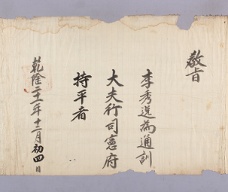 敎旨
李秀逸為通訓
大夫行司憲府
持平者
乾隆二十一年十二月初四日